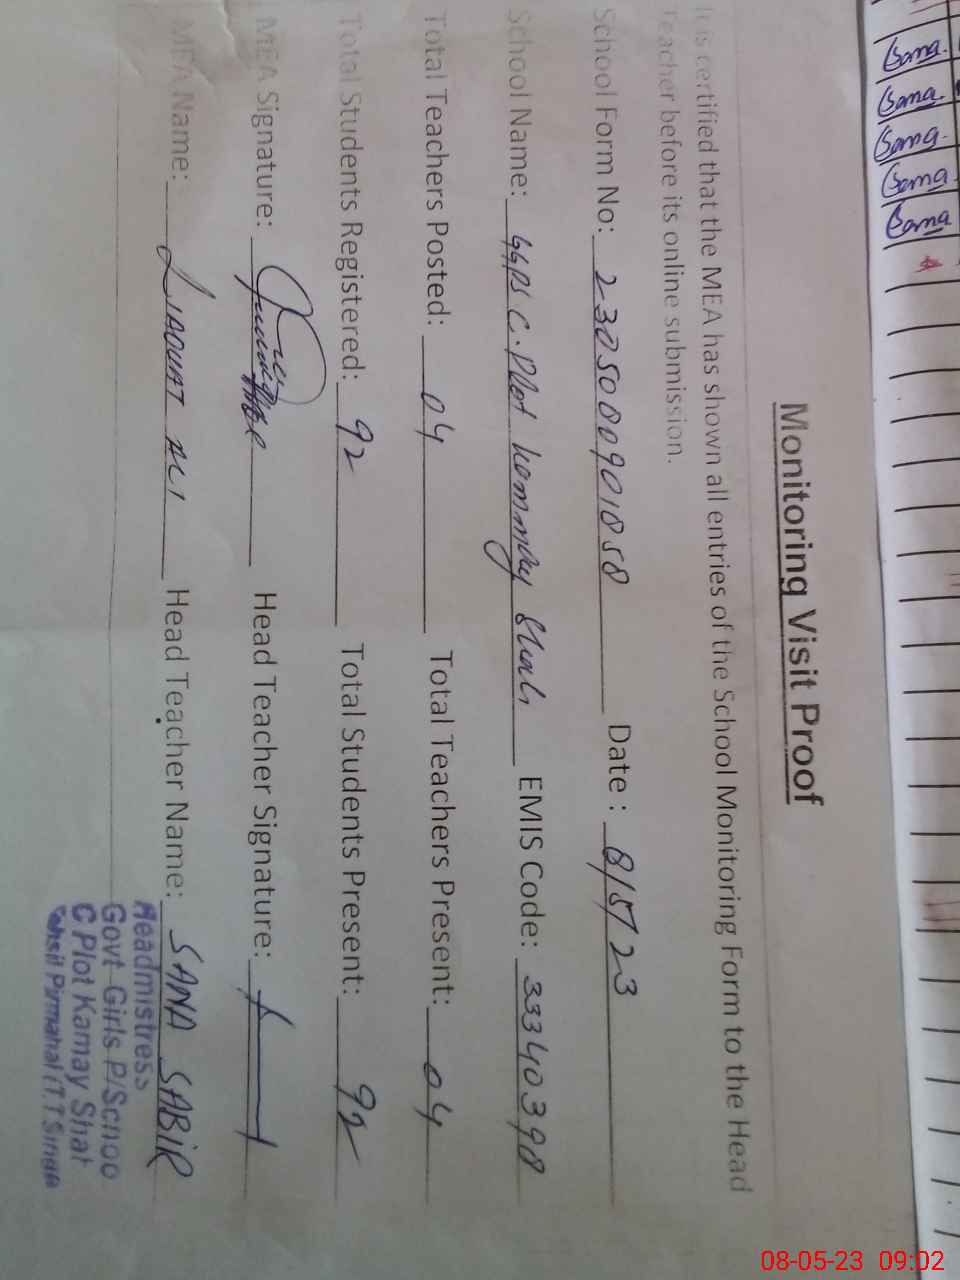 Monitoring Visit Proof
It is certified that the MEA has shown all entries of the School Monitoring Form to the Head
Teacher before its online submission.
School Form No: 230500901058 Date : 8/5/23
School Name: GGPS C. Plot EMIS Code: 33340398
Total Teachers Posted: 04 Total Teachers Present: 04
Total Students Registered: 92 Total Students Present: 92
MEA Signature: Head Teacher Signature:
MEA Name: LIAQUAT ALI Head Teacher Name: SANA SABIR
Headmistress
Govt Girls P/Schoo
C Plot Kamay Shah
Tehsil Pirmahal (T.T.Singh
Sana.
Sana.
Sana.
Sana.
Sana
08-05-23 09:02